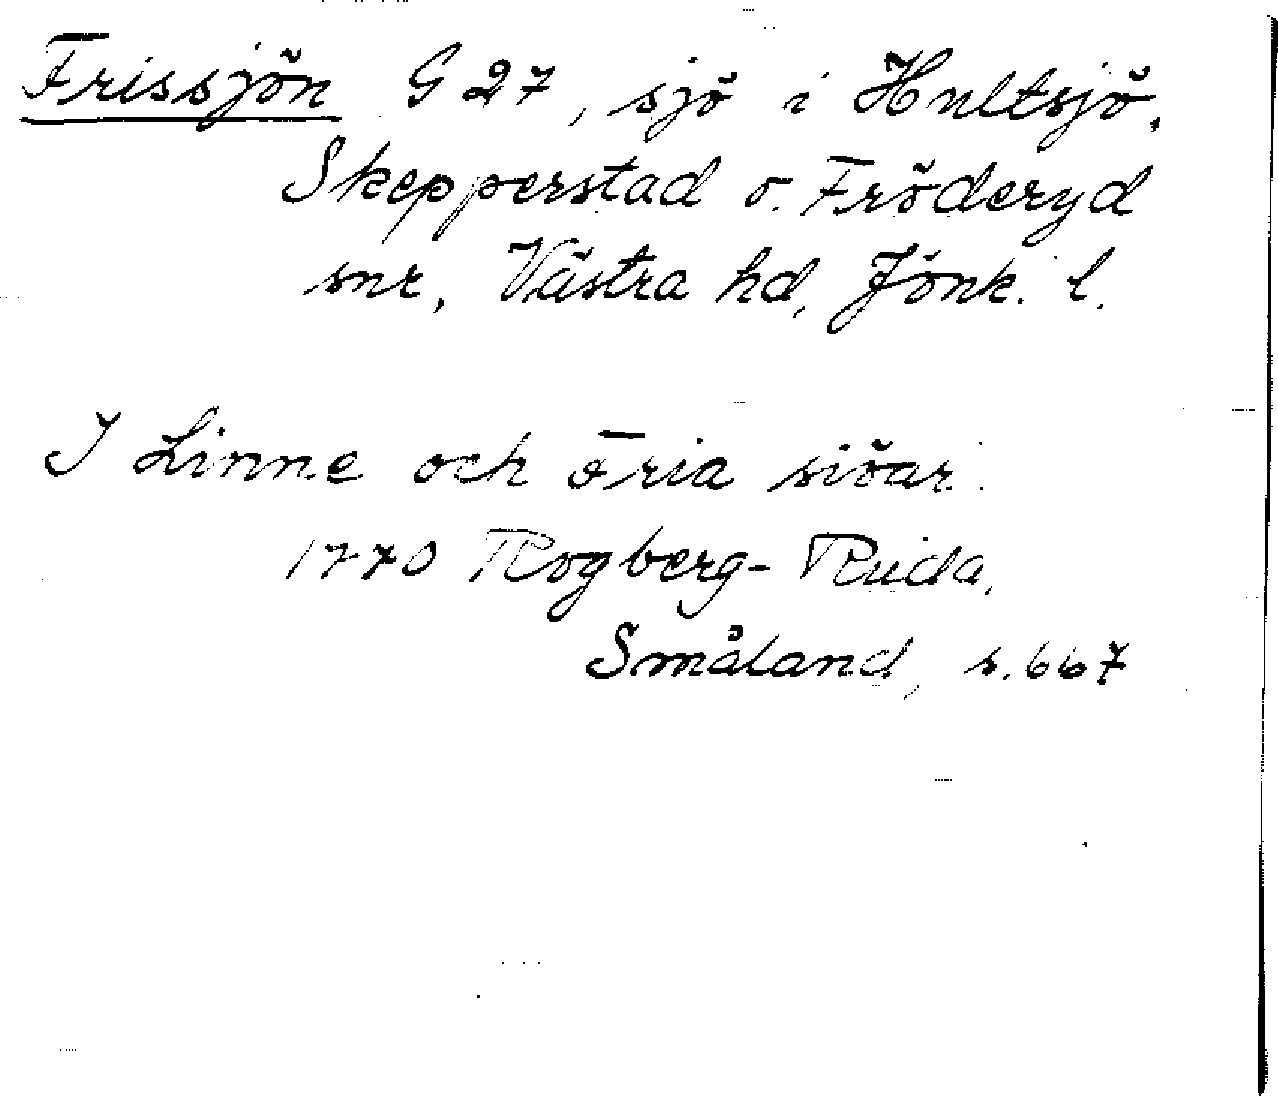 Frissjön G 27, sjö i Hultsjö,
Skepperstad o. Fröderyd
snr, Västra hd, Jönk. l.
I Linne och Fria siöar.
1770 Rogberg-Ruda,
Småland, s. 667